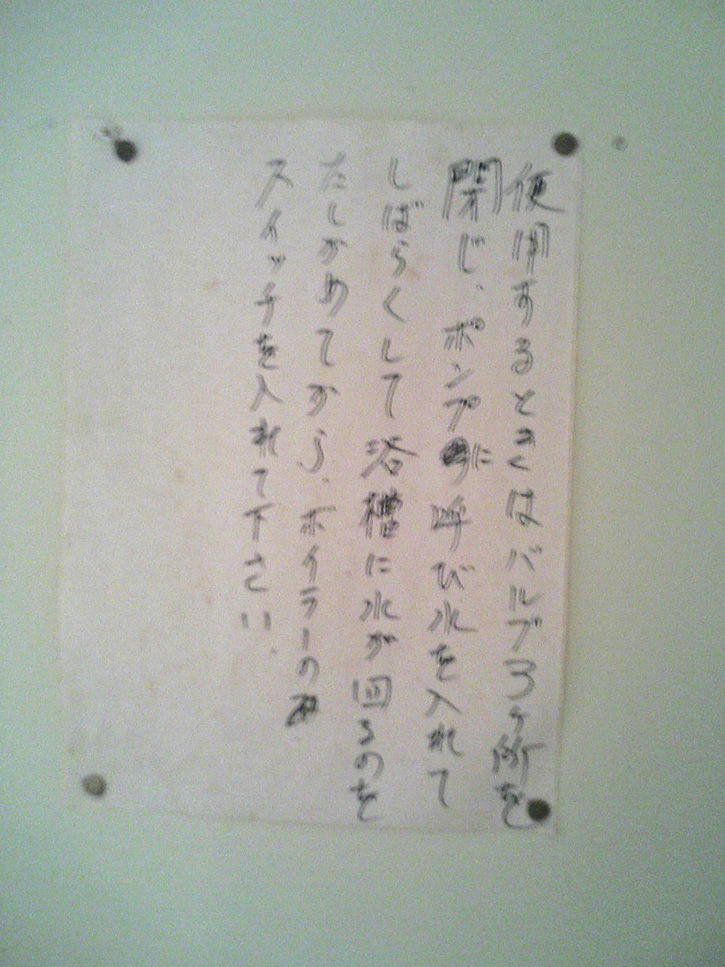 使用するときはバルブ3ヶ所を
閉じ、ポンプに呼び水を入れて
しばらくして浴槽に水が回るのを
たしかめてから、ボイラーの
スイッチを入れて下さい。